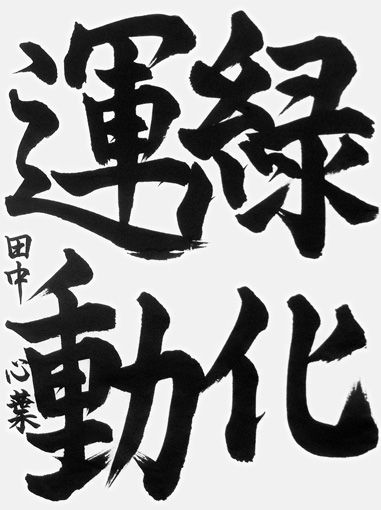 緑化
運動
田中 心葉